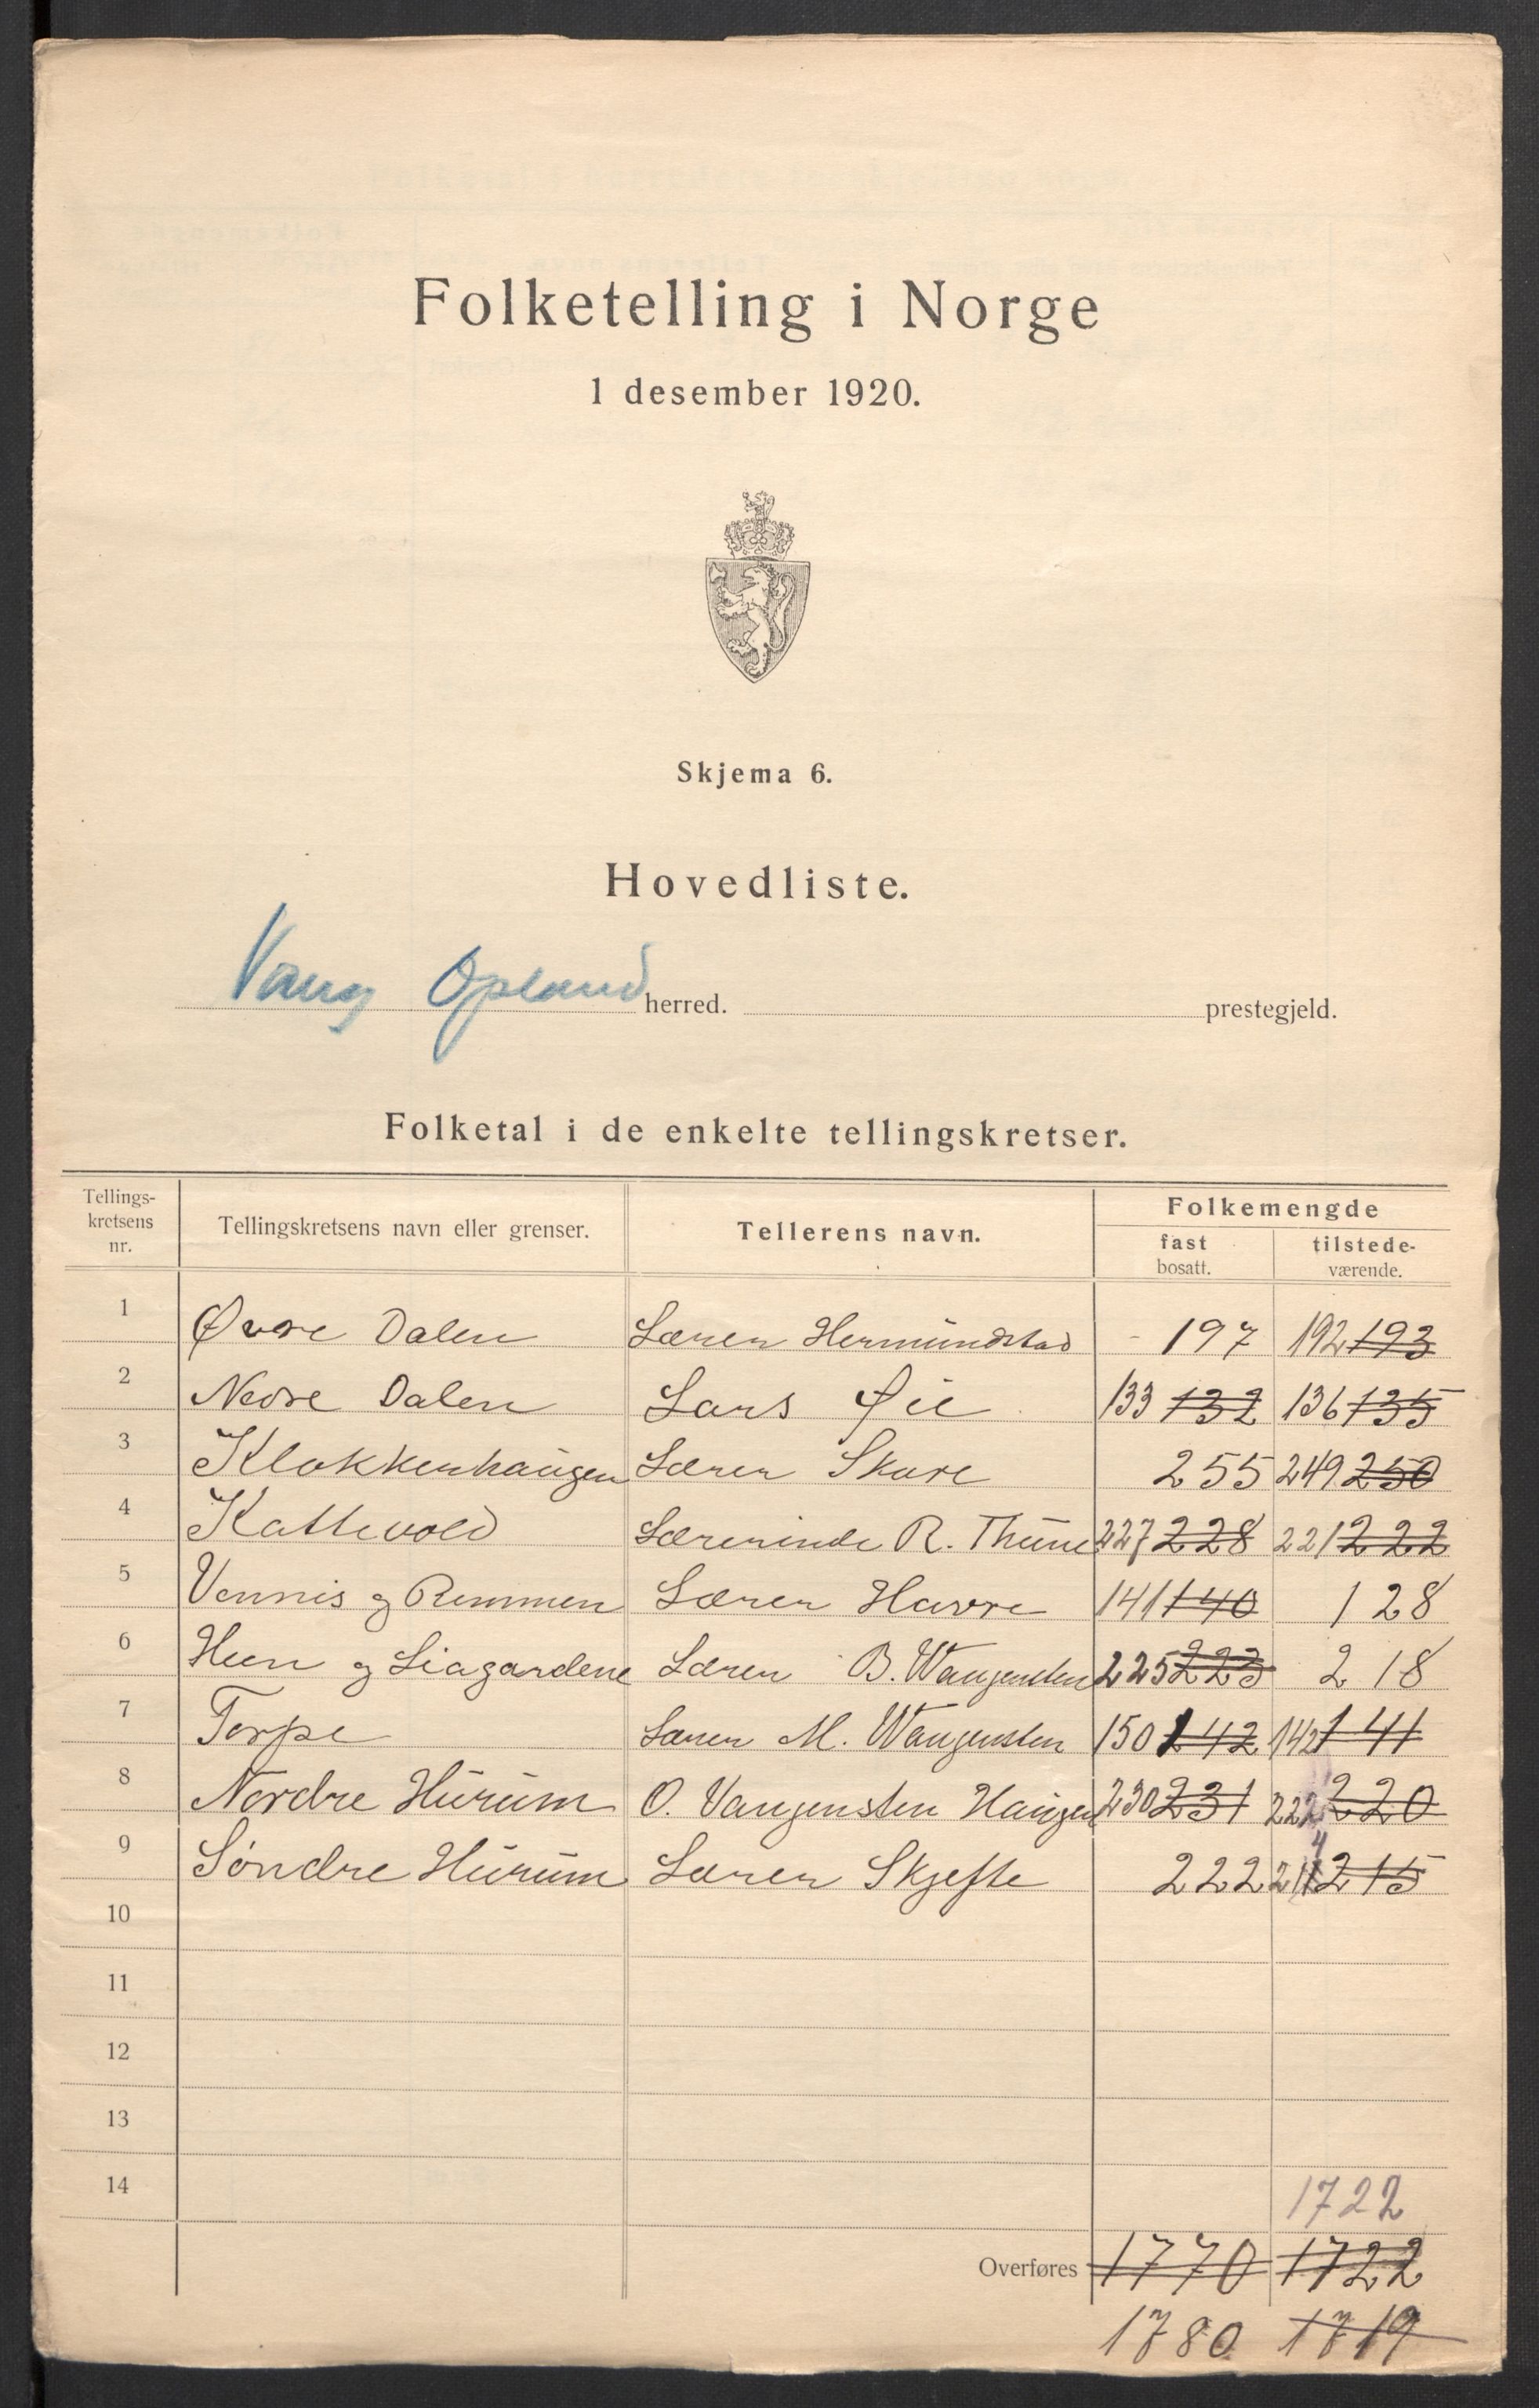 Folketelling i Norge
1 desember 1920.
Skjema 6.
Hovedliste.
Vang Opland herred. prestegjeld.
Folketal i de enkelte tellingskretser.
Tellings-
kretsens
nr.
Tellingskretsens navn eller grenser.
Tellerens navn.
Folkemengde
fast
bosatt.
tilstede-
værende.
1 Øvre Dalen Lærer Hermundstad 197 192 193
2 Nedre Dalen Lars Øie 133 132 136 135
3 Klokkerhaugen Lærer Skare 255 249 250
4 Kattevold Lærerinde R. Thune 227 228 221 222
5 Vennis og Remmen Lærer Havre 141 140 128
6 Heen og Liagardene Lærer B. Wangensten 225 223 218
7 Torpe Lærer M. Wangensten 150 142 142 141
8 Nordre Hurum O. Vangensten Haugen 230 231 222 220
9 Søndre Hurum Lærer Skjefte 222 214 215
10
11
12
13
14
1722
Overføres 1770 1722
1780 1719